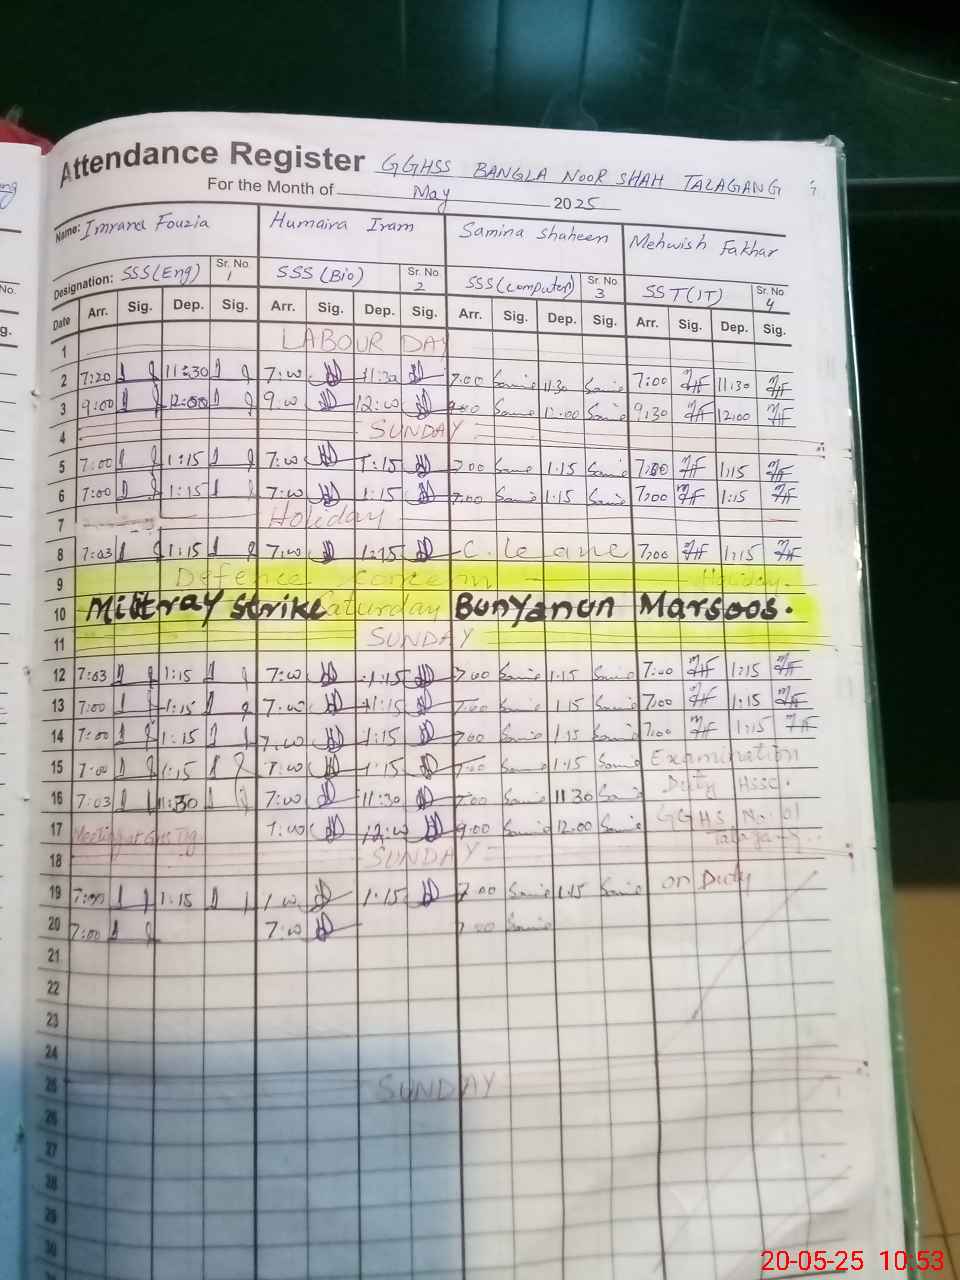 Attendance Register GGHSS BANGLA NOOR SHAH TALAGANG
For the Month of May 2025
Name: Imrana Fouzia Humaira Iram Samina Shaheen Mehwish Fakhar
Designation: SSS(Eng) Sr. No. 1 SSS (Bio) Sr. No. 2 SSS(computer) Sr. No. 3 SST(IT) Sr. No. 4
Date Arr. Sig. Dep. Sig. Arr. Sig. Dep. Sig. Arr. Sig. Dep. Sig. Arr. Sig. Dep. Sig.
1 LABOUR DAY
2 7:20 11:30 7:00 11:30 7:00 11:30 7:00 11:30
3 9:00 12:00 9:00 12:00 9:00 12:00 9:30 12:00
4 SUNDAY
5 7:00 1:15 7:00 1:15 7:00 1:15 7:00 1:15
6 7:00 1:15 7:00 1:15 7:00 1:15 7:00 1:15
7 Holiday
8 7:03 1:15 7:00 1:15 C. leave 7:00 1:15
9 Defence concern Holiday.
10 Miltray strike Saturday Bunyanun Marsoos.
11 SUNDAY
12 7:03 1:15 7:00 1:15 7:00 1:15 7:00 1:15
13 7:00 1:15 7:00 1:15 7:00 1:15 7:00 1:15
14 7:00 1:15 7:00 1:15 7:00 1:15 7:00 1:15
15 7:00 1:15 7:00 1:15 7:00 1:15 Examination
16 7:03 11:30 7:00 11:30 7:00 11:30 Duty HSSC.
17 Meeting at 7:00 12:00 9:00 12:00 GGHS No. 01
Talagang
18 SUNDAY
19 7:00 1:15 7:00 1:15 7:00 1:15 on Duty
20 7:00 7:00 7:00
21
22
23
24
25 SUNDAY
26
27
28
29
30
20-05-25 10:53